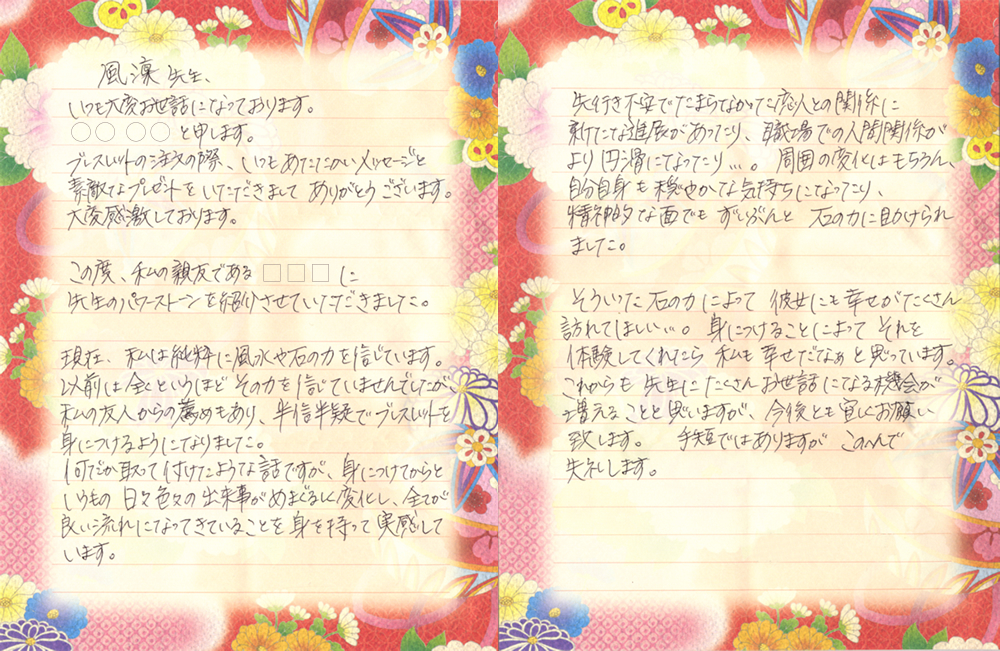 風凜先生、
いつも大変お世話になっております。
○○ ○○ と申します。
ブレスレットの注文の際、いつもあたたかいメッセージと
素敵なプレゼントをいただきまして ありがとうございます。
大変感激しております。
この度、私の親友である □□□ に
先生のパワーストーンを紹介させていただきました。
現在、私は純粋に風水や石の力を信じています。
以前は全くというほど その力を信じていませんでしたが
私の友人からの薦めもあり、半信半疑でブレスレットを
身につけるようになりました。
何だか取って付けたような話ですが、身につけてからと
いうもの 日々色々の出来事がめまぐるしく変化し、全てが
良い流れになってきていることを身を持って実感して
います。
先行き不安でたまらなかった恋人との関係に
新たな進展があったり、職場での人間関係が
より円滑になったり…。周囲の変化はもちろん、
自分自身も穏やかな気持ちになったり、
精神的な面でも ずいぶんと 石の力に助けられ
ました。
そういった石の力によって 彼女にも幸せがたくさん
訪れてほしい…。身につけることによって それを
体験してくれたら 私も幸せだなぁと思っています。
これからも 先生にたくさんお世話になる機会が
増えることと思いますが、今後とも宜しくお願い
致します。 手短ではありますが このへんで
失礼します。